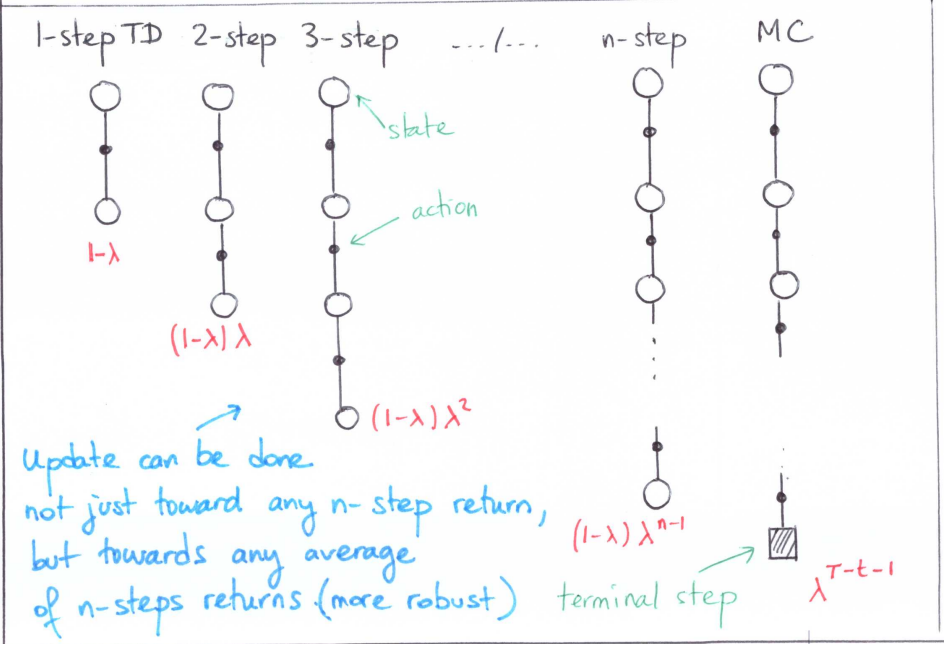 1-step TD 2-step 3-step .../... n-step MC
state
action
1-λ
(1-λ) λ
(1-λ) λ²
Update can be done
not just toward any n-step return,
but towards any average
of n-steps returns.(more robust)
(1-λ) λⁿ⁻¹
terminal step
λ^T-t-1